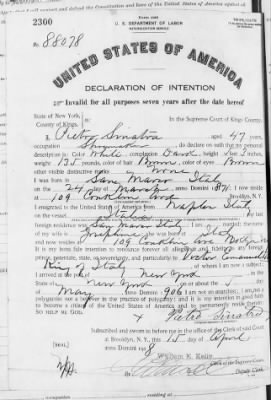 U. S. DEPARTMENT OF LABOR
NATURALIZATION SERVICE
2360
No. 88078
UNITED STATES OF AMERICA
DECLARATION OF INTENTION
Invalid for all purposes seven years after the date hereof
State of New York,
County of Kings.
In the Supreme Court of Kings County.
I, Pietro, aged 47 years,
occupation, do declare on oath that my personal
description is: Color White, complexion Dark, height 5 feet inches,
weight 135 pounds, color of hair Brown, color of eyes Brown
other visible distinctive marks None
I was born in San Marco Italy
on the 24 day of March, anno Domini 1871; I now reside
at 109 Conklin Ave, Brooklyn, N.Y.
I emigrated to the United States of America from Naples Italy
on the vessel Italia; my last
foreign residence was San Marco Italy. I am married; the name
of my wife is Josephine; she was born at Italy
and now resides at 109 Conklin Ave Bklyn
It is my bona fide intention to renounce forever all allegiance and fidelity to any foreign
prince, potentate, state, or sovereignty, and particularly to Victor Emmanuel III
King of Italy, of whom I am now a subject;
I arrived at the port of New York, in the
State of New York on or about the day of
May, anno Domini 1906; I am not an anarchist; I am not a
polygamist nor a believer in the practice of polygamy; and it is my intention in good faith
to become a citizen of the United States of America and to permanently reside therein:
SO HELP ME GOD.
Subscribed and sworn to before me in the office of the Clerk of said Court
[SEAL]
at Brooklyn, N.Y., this 15 day of April
anno Domini 1918
William E. Kelly
Clerk of the Supreme Court.